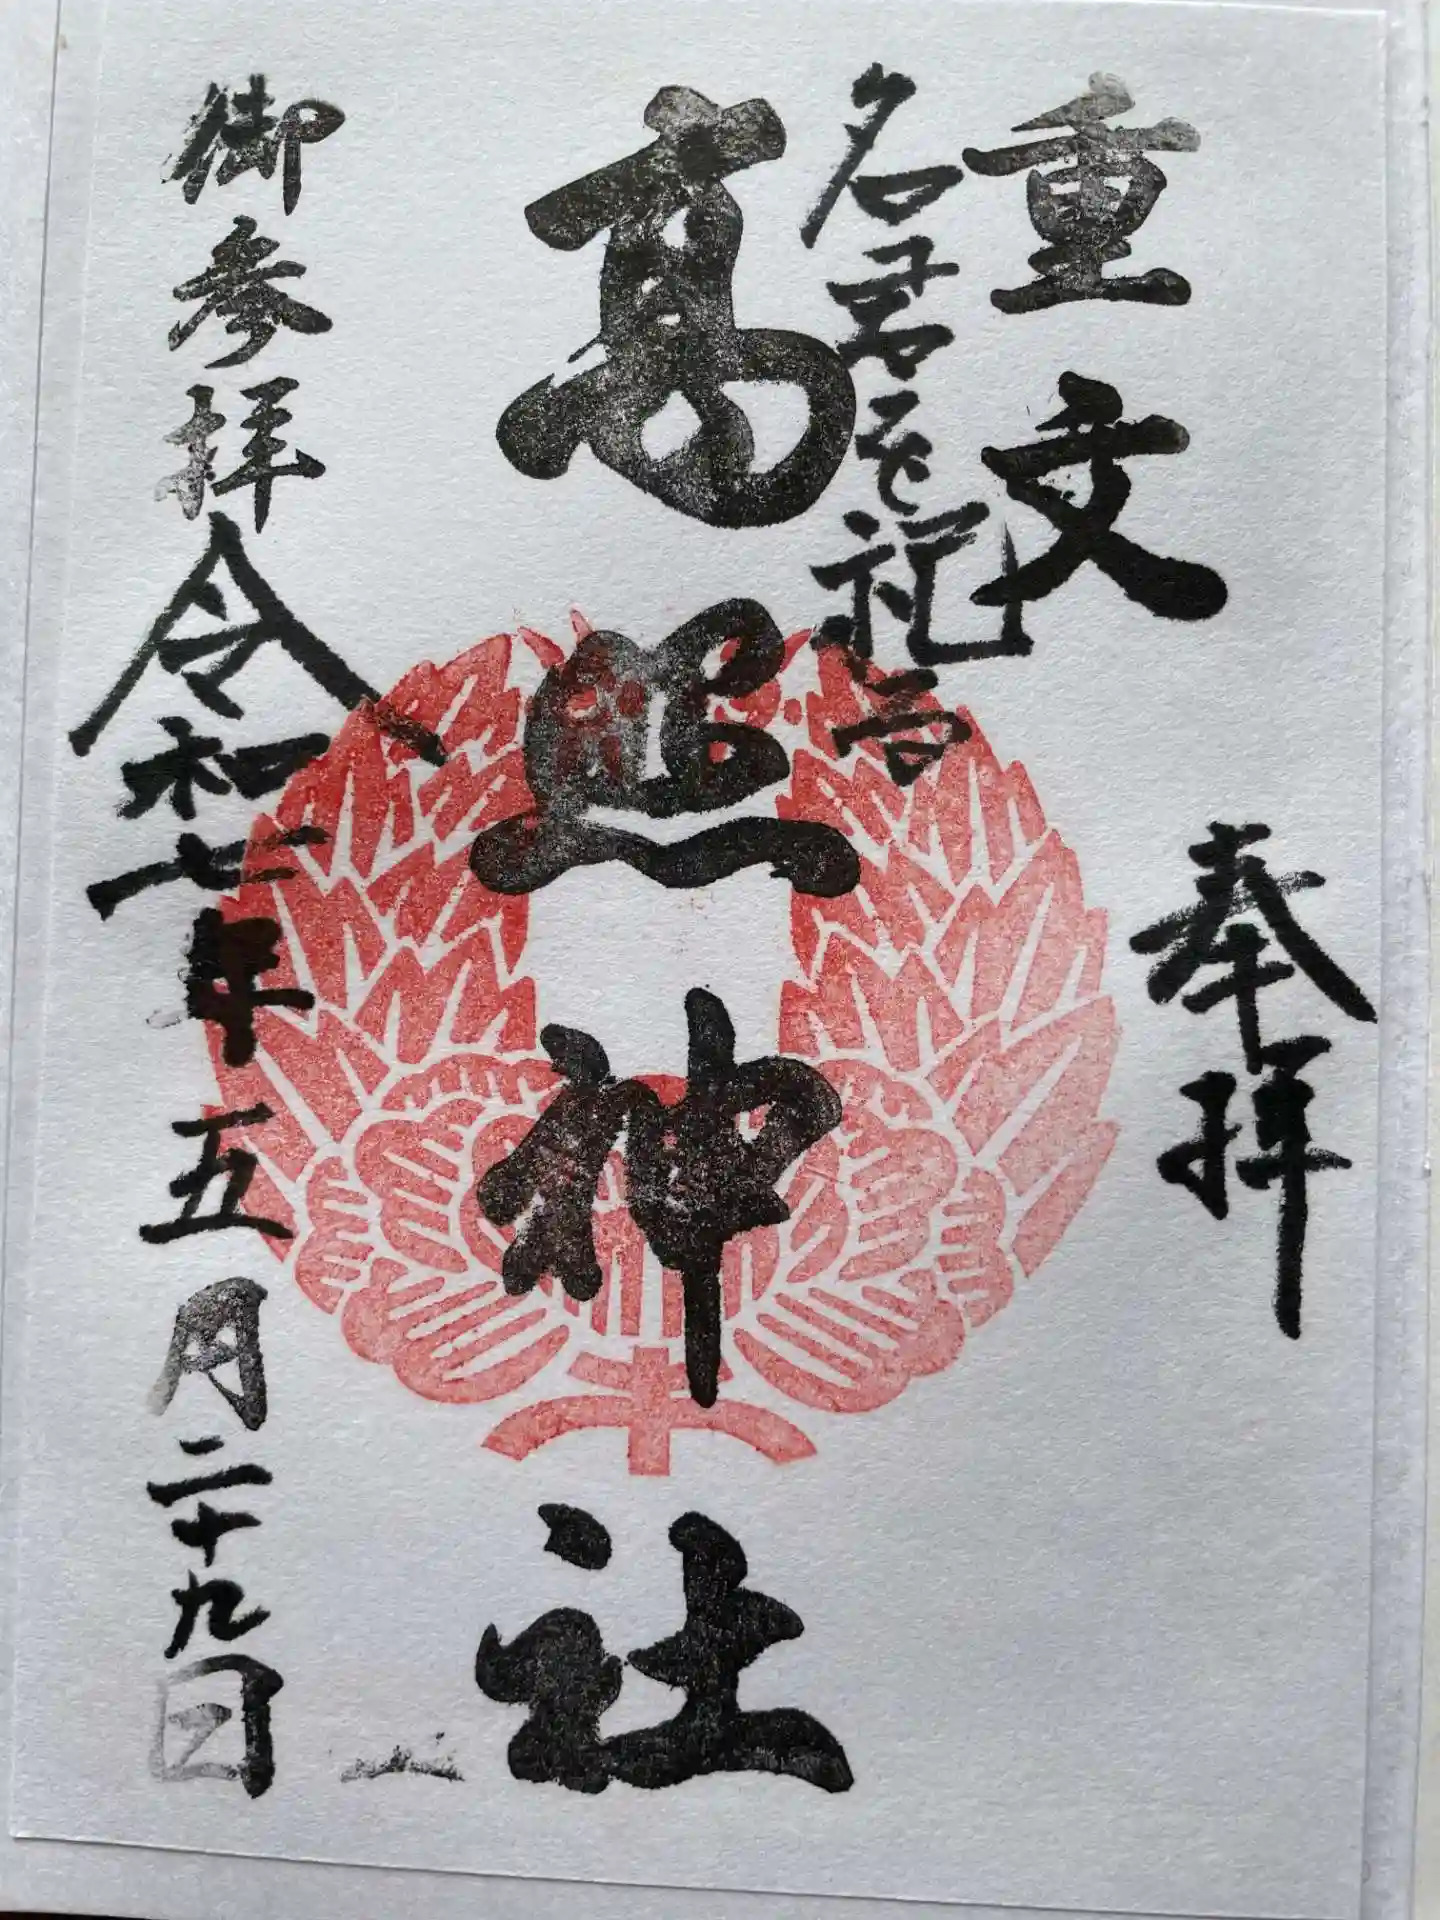 奉拝
重文
名君を祀
高照神社
御参拝令和七年五月二十九日